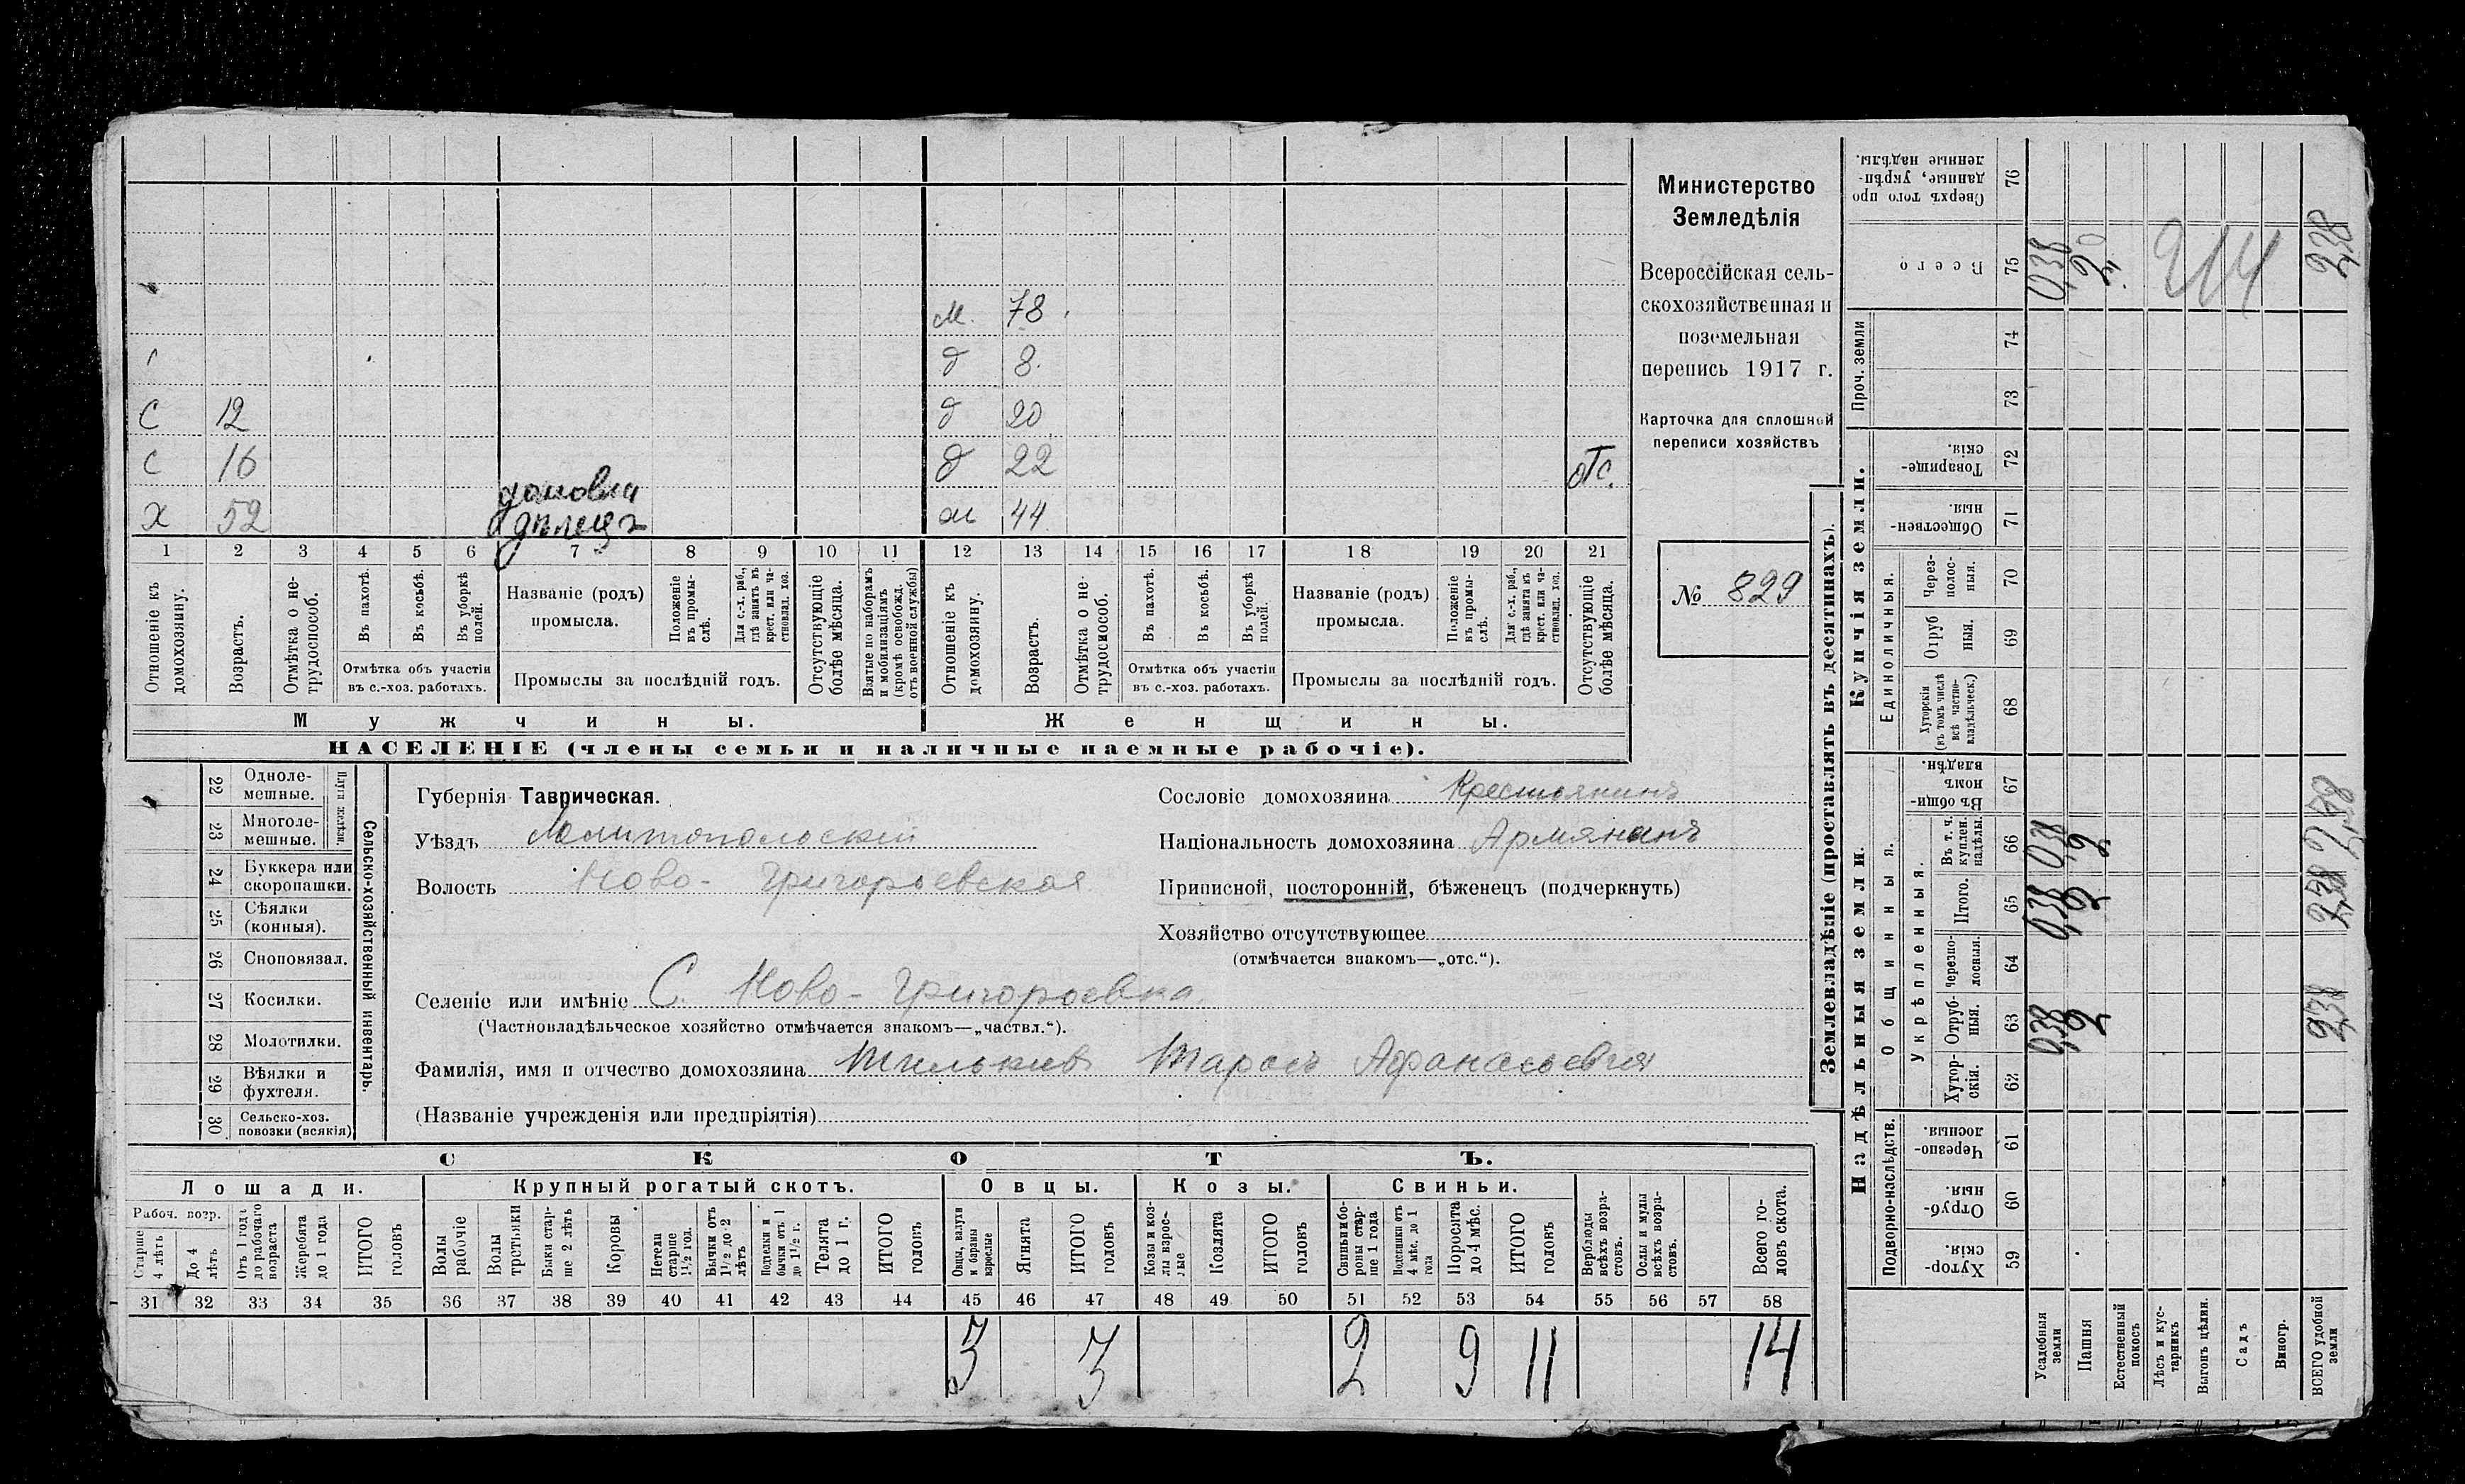 м. 78
д 8.
С 12 д 20
С 16 д 22 отс.
Х 52 домовла
дѣлецъ ж 44
1 2 3 4 5 6 7 8 9 10 11 12 13 14 15 16 17 18 19 20 21
Отношеніе къ домохозяину.
Возрастъ.
Отмѣтка о нетрудоспособ.
Въ пахотѣ.
Въ косьбѣ.
Въ уборкѣ полей.
Отмѣтка объ участіи
въ с.-хоз. работахъ.
Названіе (родъ)
промысла.
Положеніе въ промыслѣ.
Для с.-х. раб., гдѣ занятъ въ крест. или частновлад. хоз.
Промыслы за послѣдній годъ.
Отсутствующіе болѣе мѣсяца.
Взятые по наборамъ и мобилизаціямъ (кромѣ освобожд. отъ военной службы)
Отношеніе къ домохозяину.
Возрастъ.
Отмѣтка о нетрудоспособ.
Въ пахотѣ.
Въ косьбѣ.
Въ уборкѣ полей.
Отмѣтка объ участіи
въ с.-хоз. работахъ.
Названіе (родъ)
промысла.
Положеніе въ промыслѣ.
Для с.-х. раб., гдѣ занята въ крест. или частновлад. хоз.
Промыслы за послѣдній годъ.
Отсутствующіе болѣе мѣсяца.
Мужчины. Женщины.
НАСЕЛЕНІЕ (члены семьи и наличные наемные рабочіе).
Министерство
Земледѣлія
Всероссійская сель-
скохозяйственная и
поземельная
перепись 1917 г.
Карточка для сплошной
переписи хозяйствъ
№ 829
Сельско-хозяйственный инвентарь.
Плуги желѣзн.
22 Одноле-
мешные.
23 Многоле-
мешные.
24 Буккера или
скоропашки.
25 Сѣялки
(конныя).
26 Сноповязал.
27 Косилки.
28 Молотилки.
29 Вѣялки и
фухтеля.
30 Сельско-хоз.
повозки (всякія)
Губернія Таврическая.
Уѣздъ Мелитопольскій
Волость Ново-Григорьевская
Селеніе или имѣніе С. Ново-Григорьевка
(Частновладѣльческое хозяйство отмѣчается знакомъ—„частвл.“).
Фамилія, имя и отчество домохозяина Афанасьевич
(Названіе учрежденія или предпріятія)
Сословіе домохозяина Крестьянинъ
Національность домохозяина Армянинъ
Приписной, посторонній, бѣженецъ (подчеркнуть)
Хозяйство отсутствующее
(отмѣчается знакомъ—„отс.“).
СКОТЪ.
Лошади. Крупный рогатый скотъ. Овцы. Козы. Свиньи.
Рабоч. возр.
Старше 4 лѣтъ
До 4 лѣтъ
Отъ 1 года до рабочаго возраста
Жеребята до 1 года
ИТОГО головъ
Волы рабочіе
Волы третьяки
Быки старше 2 лѣтъ
Коровы
Нетели старше 1½ год.
Бычки отъ 1½ до 2 лѣтъ
Подтелки и бычки отъ 1 до 1½ г.
Телята до 1 г.
ИТОГО головъ
Овцы, валухи и бараны взрослые
Ягнята
ИТОГО головъ
Козы и козлы взрослые
Козлята
ИТОГО головъ
Свиньи и боровы старше 1 года
Подсвинки отъ 4 мѣс. до 1 года
Поросята до 4 мѣс.
ИТОГО головъ
Верблюды всѣхъ возрастовъ.
Ослы и мулы всѣхъ возрастовъ.
Всего головъ скота.
31 32 33 34 35 36 37 38 39 40 41 42 43 44 45 46 47 48 49 50 51 52 53 54 55 56 57 58
3 3 2 9 11 14
Землевладѣніе (проставлять въ десятинахъ).
Надѣльныя земли. Купчія земли. Проч. земли
Подворно-наслѣдств. Общинныя. Укрѣпленныя. Единоличныя.
Хуторскія. 59
Отрубныя. 60
Черезполосныя. 61
Хуторскія. 62
Отрубныя. 63
черезполосныя. 64
Итого. 65
Въ т. ч. куплен. надѣлы. 66
Въ общинномъ владѣн. 67
Хуторскія (въ томъ числѣ всѣ частновладѣльческ.) 68
Отрубныя. 69
Черезполосныя. 70
Общественныя. 71
Товарищескія. 72
73
74
Всего 75
Сверхъ того проданные, укрѣпленные надѣлы. 76
Усадебныя земли 0,38 0,38 0,38 0,38
Пашня 2 2 2 2
Естественный покосъ
Лѣсъ и кустарникъ
Выгонъ цѣлин.
Садъ
Виногр.
ВСЕГО удобной земли 2,38 2,38 2,38 2,38